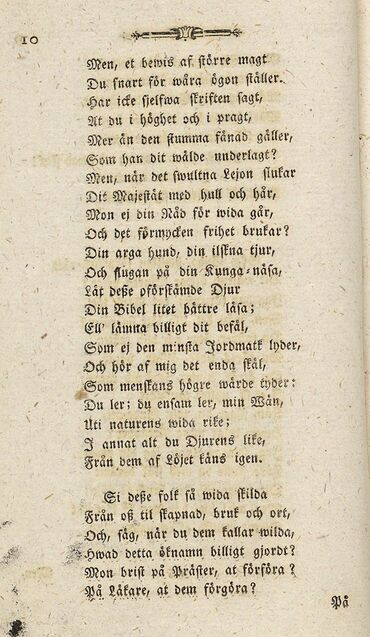 10
Men, et bewis af större magt
Du snart för wåra ögon ställer.
Har icke sjelfwa skriften sagt,
At du i höghet och i pragt,
Mer än den stumma fänad gäller,
Som han dit wälde underlagt?
Men, när det swultna Lejon slukar
Dit Majestät med hull och hår,
Mon ej din Nåd för wida går,
Och det förmycken frihet brukar?
Din arga hund, din ilskna tjur,
Och flugan på din Kunga-näsa,
Låt deße oförskämde Djur
Din Bibel litet bättre läsa;
Ell' lämna billigt dit befäl,
Som ej den minsta Jordmatk lyder,
Och hör af mig det enda skäl,
Som menskans högre wärde tyder:
Du ler; du ensam ler, min Wän,
Uti naturens wida rike;
I annat alt du Djurens like,
Från dem af Löjet käns igen.
Si deße folk så wida skilda
Från oß til skapnad, bruk och ort,
Och, säg, när du dem kallar wilda,
Hwad detta öknamn billigt gjordt?
Mon brist på Präster, at förföra?
På Läkare, at dem förgöra?
På